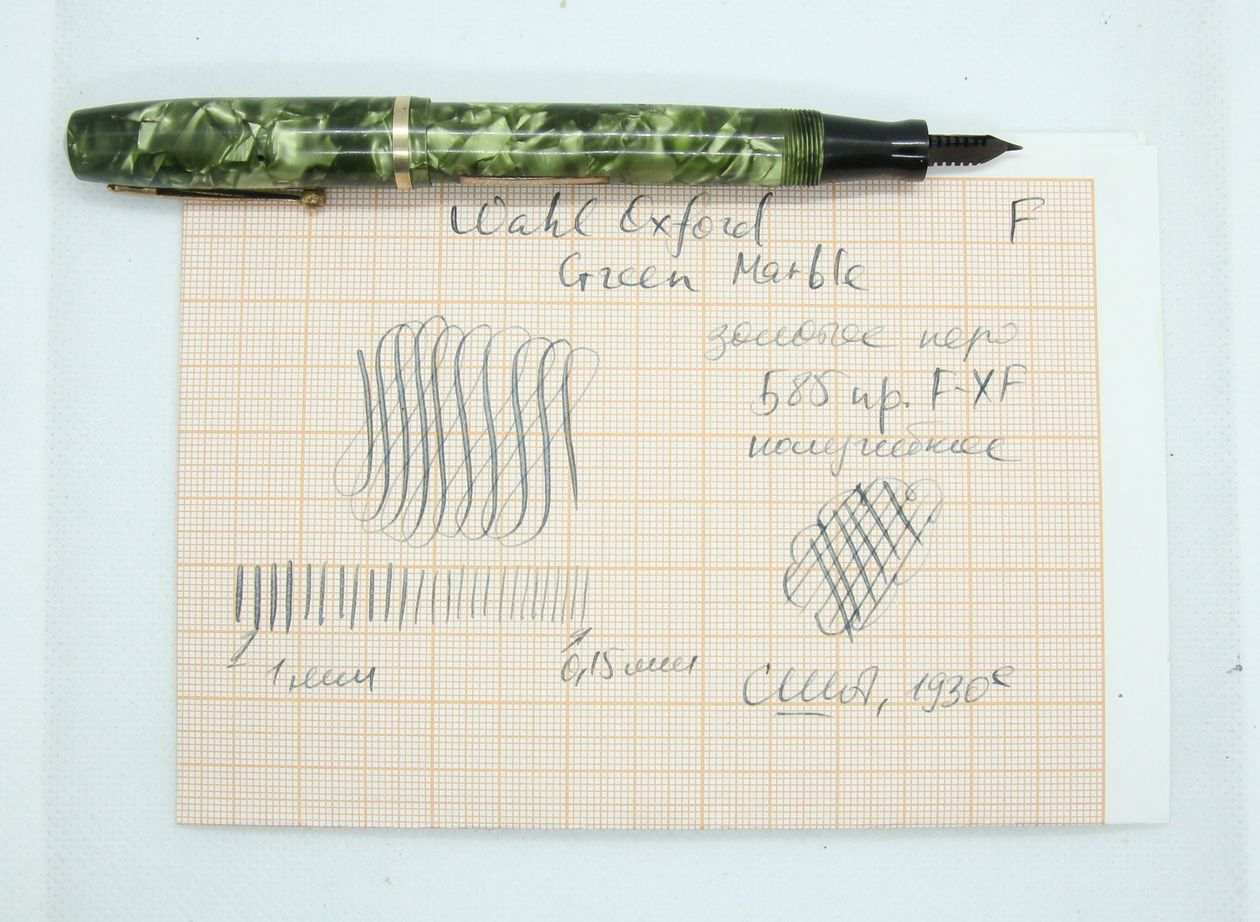 Wahl Oxford F
Green Marble
золотое перо
585 пр. F-XF
полугибкое
1 мм
0,15 мм
США, 1930е